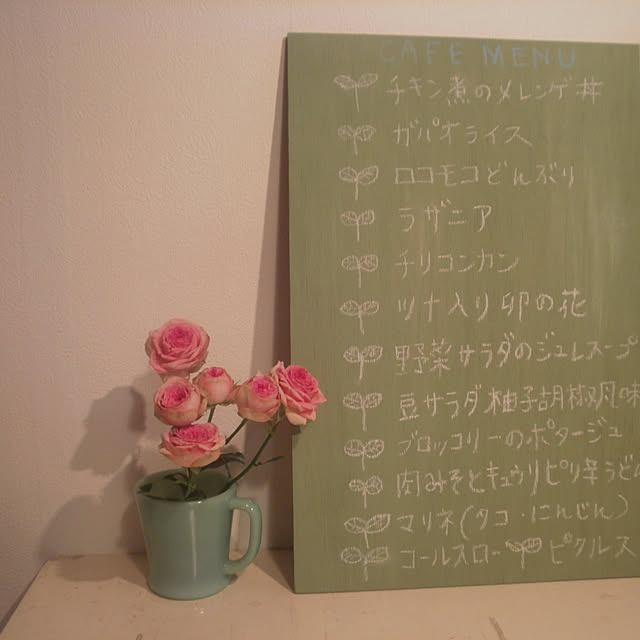 CAFE MENU
チキン煮のメレンゲ丼
ガパオライス
ロコモコどんぶり
ラザニア
チリコンカン
ツナ入り卯の花
野菜サラダのジュレスープ
豆サラダ柚子胡椒風味
ブロッコリーのポタージュ
肉みそとキュウリピリ辛うどん
マリネ(タコ・にんじん)
コールスロー ピクルス